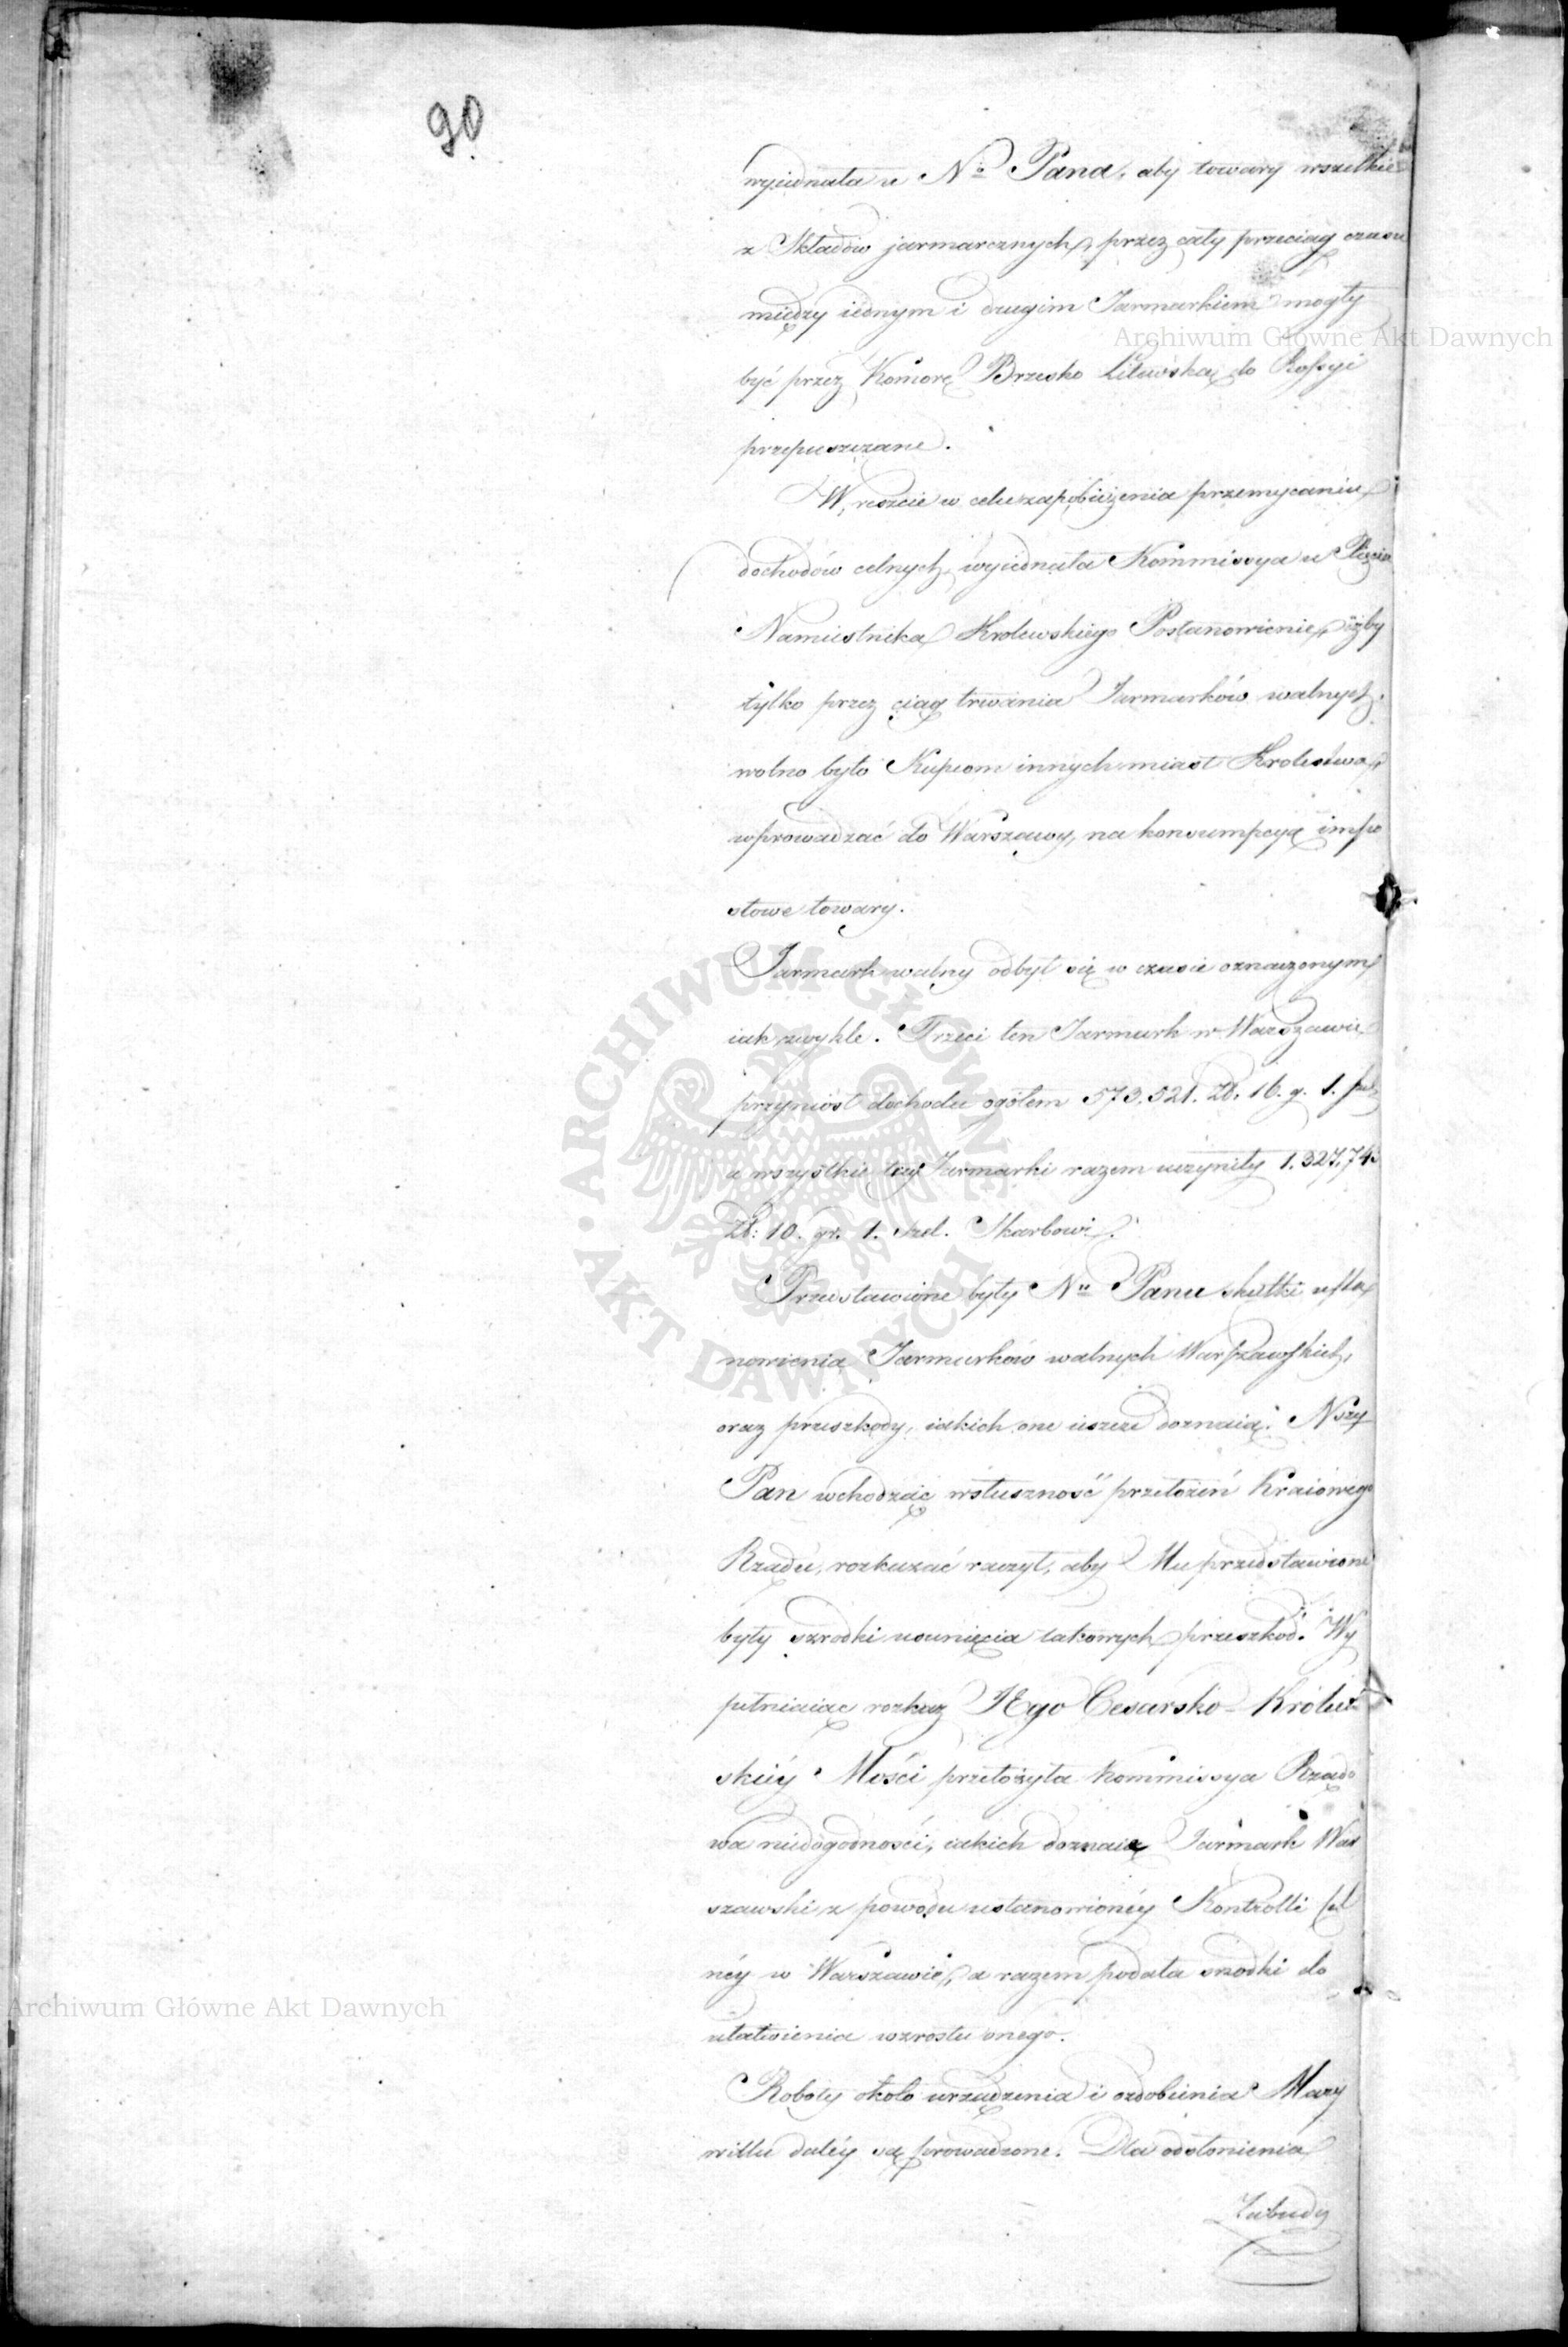 90
wyiednała u N<sup>o</sup> Pana, aby towary wszelkie
z Składów jarmarcznych, przez cały przeciąg czasu
między iednym i drugim Jarmarkiem mogły
być przez Komorę Brzesko Litewską do Rossyi
przepuszczane.
W reszcie w celu zapobieżenia przemycaniu
dochodów celnych, wyiednała Kommissya u Xięcia
Namiestnika Krolewskiego Postanowienie, iżby
tylko przez ciąg trwania Jarmarków walnych
wolno było Kupcom innych miast Krolestwa,
wprowadzać do Warszawy, na konsumpcyą impo
stowe towary.
Jarmark walny odbył się w czasie oznaczonym
iak zwykle. Trzeci ten Jarmark w Warszawie
przyniósł dochodu ogółem 573,521. Zł. 16. g. 1.
a wszystkie trzy Jarmarki razem uczyniły 1.327,743
Zł: 10. gr. 1. szel. Skarbowi.
Przedstawione były N<sup>u</sup> Panu skutki usta
nowienia Jarmarków walnych Warszawskich,
oraz przeszkody, iakich one ieszcze doznaią. Nszy
Pan wchodząc w słuszność przełożeń Kraiowego
Rządu, rozkazać raczył, aby Mu przedstawione
były szrodki usunięcia takowych przeszkód. Wy
pełniaiąc rozkaz JEgo Cesarsko-Królew
skiéy Mości przełożyła Kommissya Rządo
wa niedogodności, iakich doznaie Jarmark War
szawski z powodu ustanowionéy Kontrolli Cel
néy w Warszawie, a razem podała srzodki do
ułatwienia wzrostu onego.
Roboty około urządzenia i ozdobienia Mary
willu daléy są prowadzone. Dla odsłonienia
Zabudo
Archiwum Główne Akt Dawnych
Archiwum Główne Akt Dawnych
ARCHIWUM GŁÓWNE AKT DAWNYCH